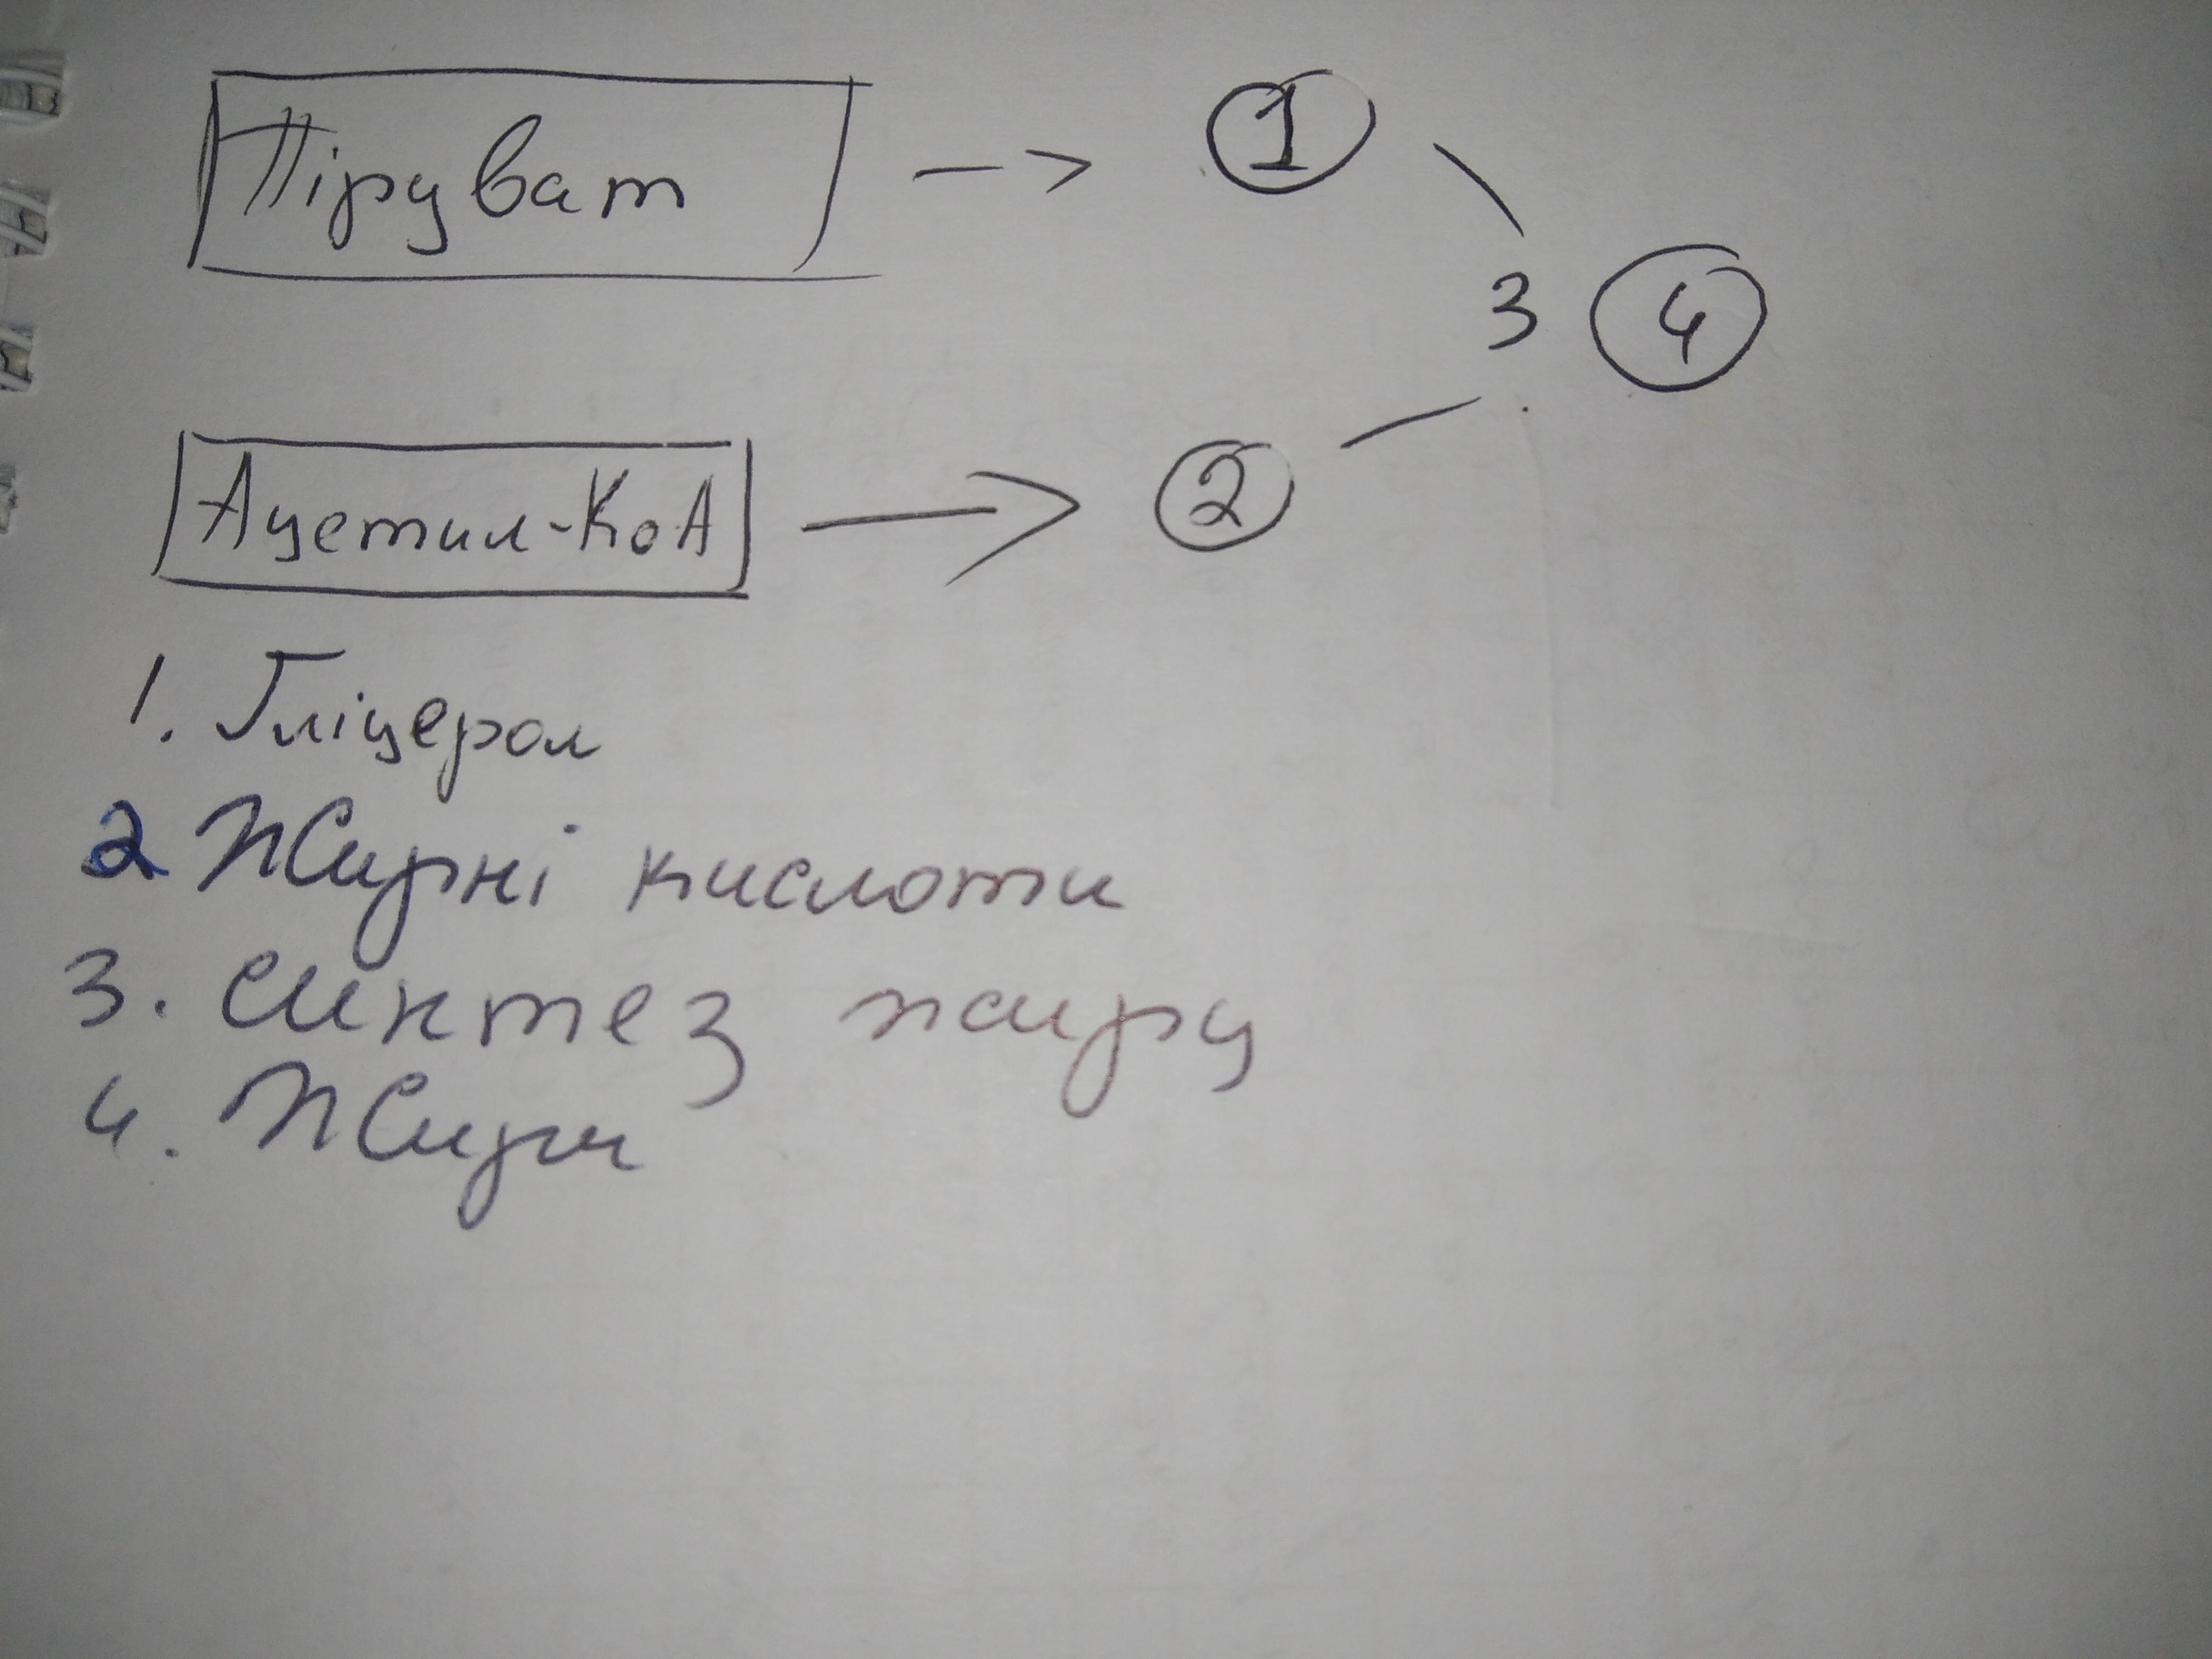 Піруват -> 1
3 4
Ацетил-КоА → 2
1. Гліцерол
2 Жирні кислоти
3. Синтез жиру
4. Жири